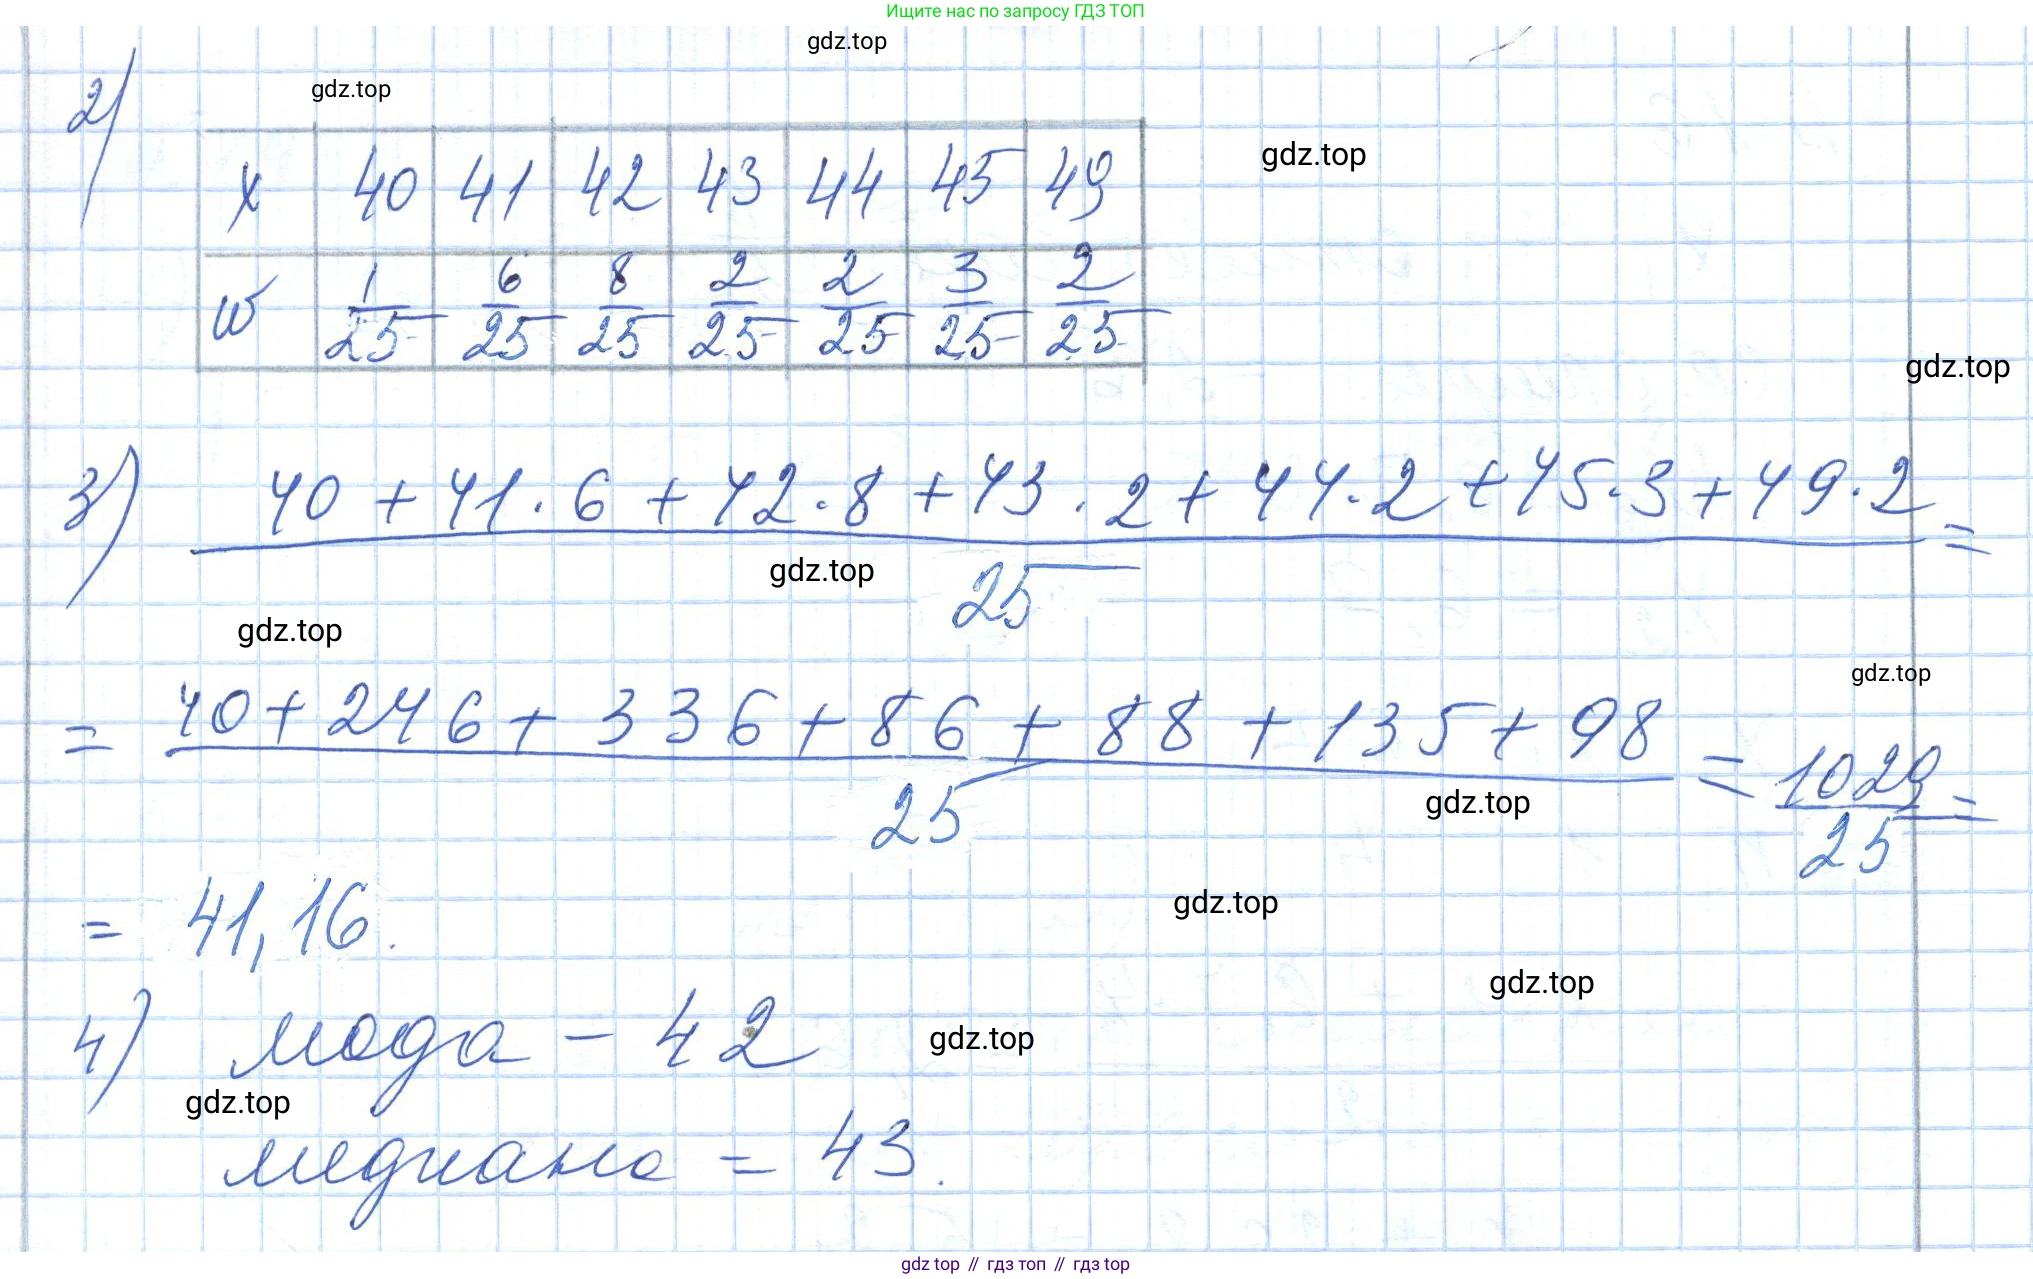 Ищите нас по запросу ГДЗ ТОП
gdz.top
2)
gdz.top
x 40 41 42 43 44 45 49
gdz.top
w 1/25 6/25 8/25 2/25 2/25 3/25 2/25
gdz.top
3) 40 + 41 · 6 + 42 · 8 + 43 · 2 + 44 · 2 + 45 · 3 + 49 · 2 =
25
gdz.top
gdz.top
gdz.top
= 40 + 246 + 336 + 86 + 88 + 135 + 98 = 1029 =
25 25
gdz.top
= 41,16.
gdz.top
gdz.top
4) мода – 42
gdz.top
gdz.top
медиана = 43.
gdz top // гдз топ // гдз top